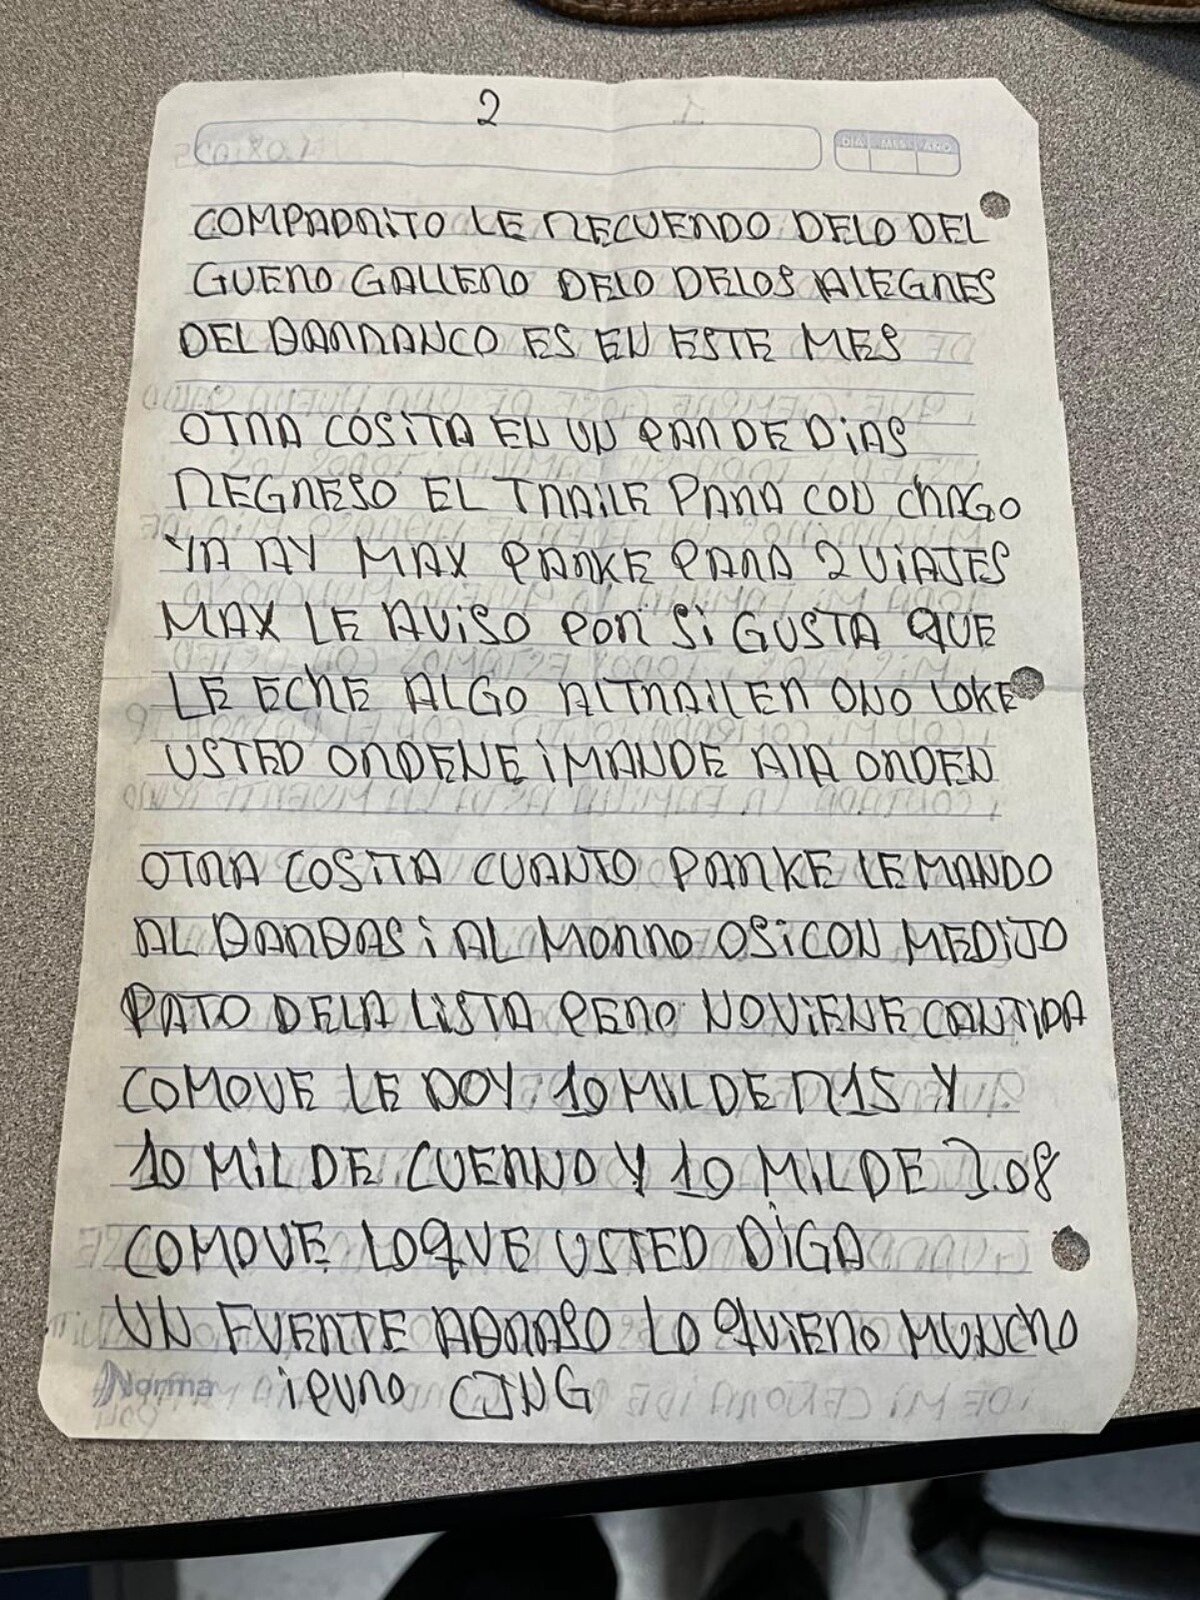 2
DIA MES AÑO
COMPADRITO LE RECUERDO DELO DEL
GUERO GALLERO DELO DELOS ALEGRES
DEL BARRANCO ES EN ESTE MES
OTRA COSITA EN UN PAR DE DIAS
REGRESO EL TRAILE PARA COU CHAGO
YA AY MAX PARKE PARA 2 VIAJES
MAX LE AViSO POR Si GUSTA QUE
LE ECHE ALGO AlTRAiLER ONO LOKE
USTED ORDENE i MANDE AlA ORDEN
OTRA COSiTA CUANTO PARKE LE MANDO
AL BARBAS i AL MORRO OSiCON MEDiJO
PATO DELA LiSTA PERO NOViENE CANTiDA
COMOVE LE DOY 10 MiL DE R15 Y
10 MiL DE CUERNO Y 10 MiL DE 3.08
COMOVE LOQUE USTED DiGA
UN FUERTE ABRASO LO QUiERO MUNCHO
Norma i PURO CJNG